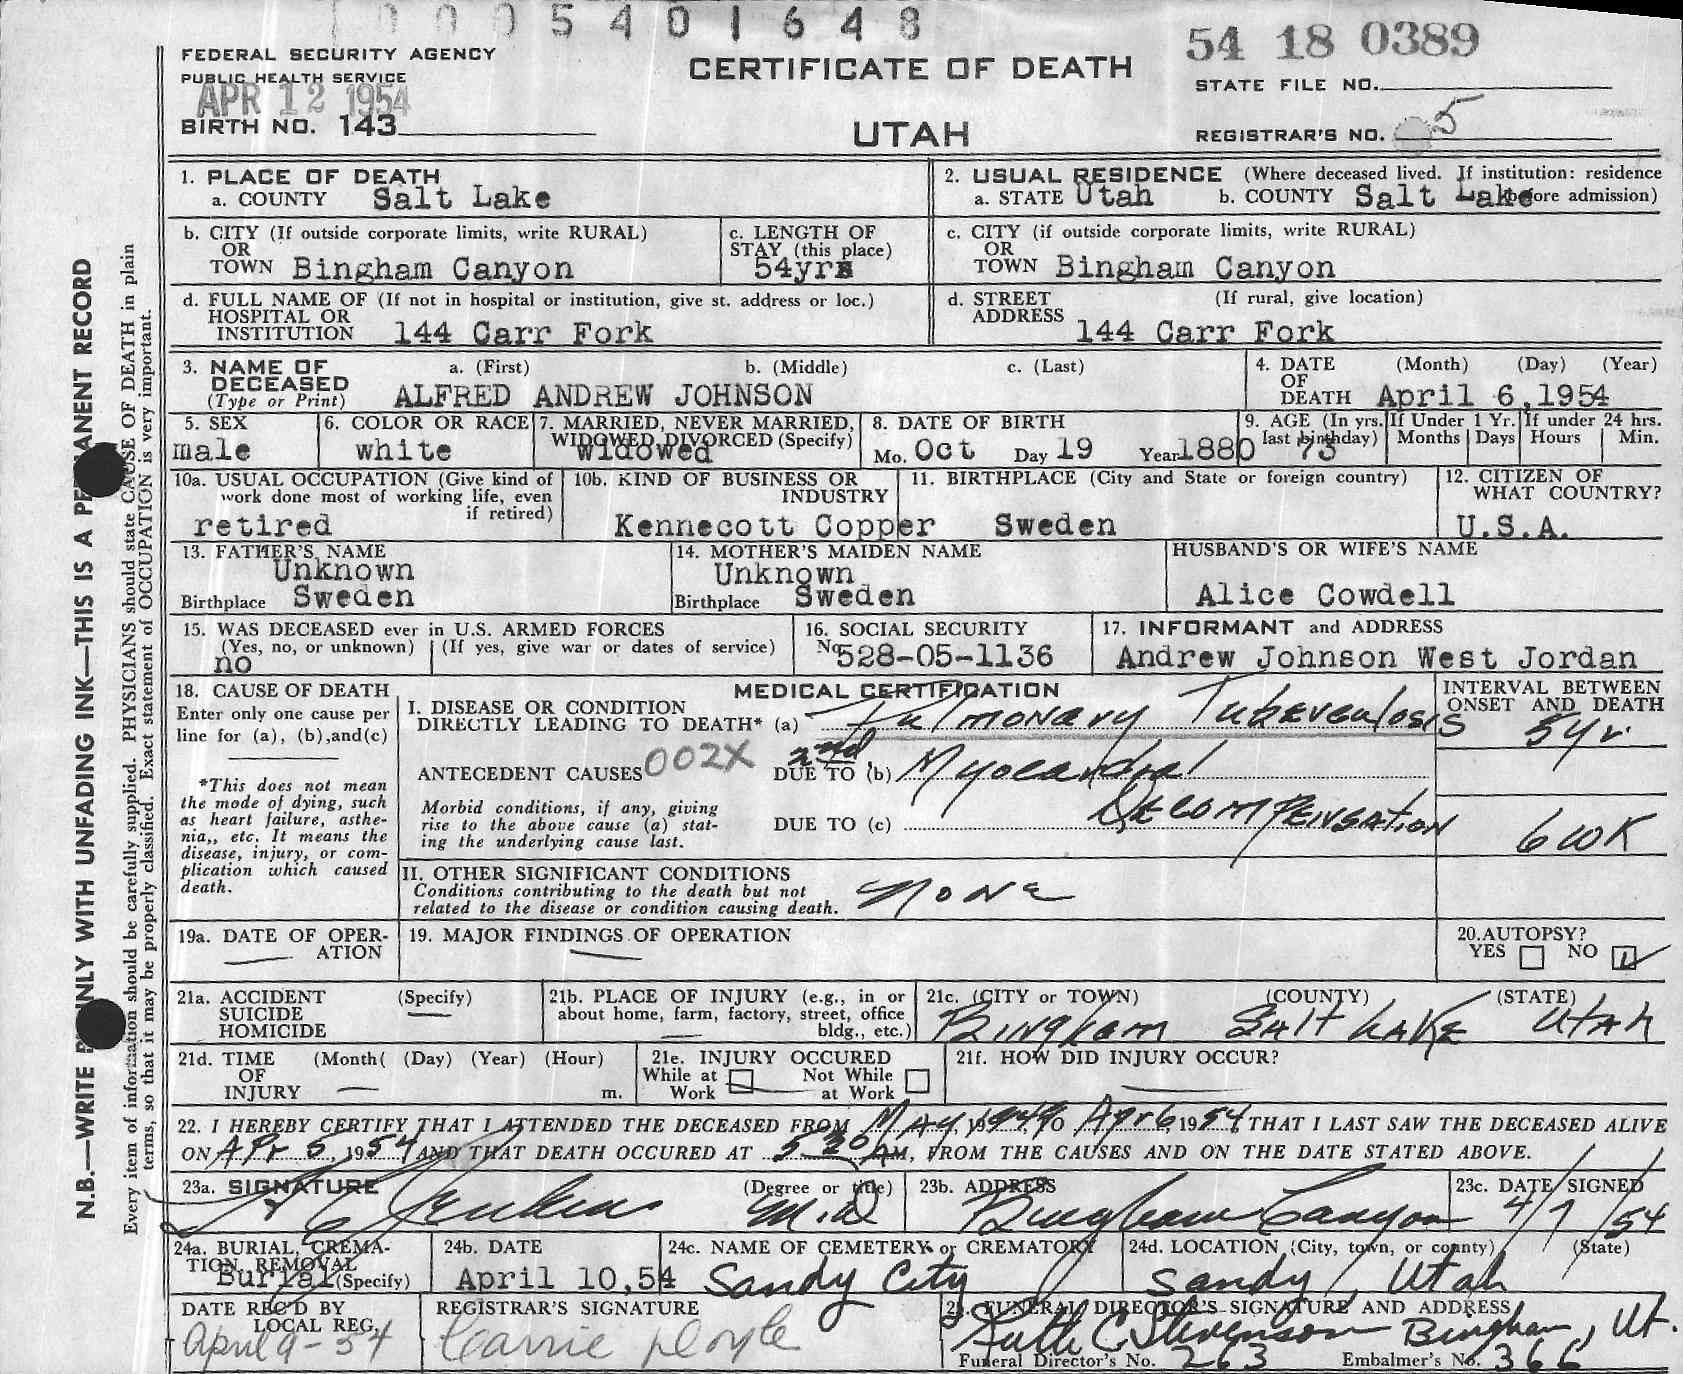 0005401648
54 18 0389
FEDERAL SECURITY AGENCY
PUBLIC HEALTH SERVICE
APR 12 1954
BIRTH NO. 143
CERTIFICATE OF DEATH
UTAH
STATE FILE NO.
REGISTRAR'S NO. 5
N.B.—WRITE PLAINLY WITH UNFADING INK—THIS IS A PERMANENT RECORD
Every item of information should be carefully supplied. PHYSICIANS should state CAUSE OF DEATH in plain
terms, so that it may be properly classified. Exact statement of OCCUPATION is very important.
1. PLACE OF DEATH
a. COUNTY Salt Lake
2. USUAL RESIDENCE (Where deceased lived. If institution: residence
a. STATE Utah b. COUNTY Salt Lake before admission)
b. CITY (If outside corporate limits, write RURAL)
OR
TOWN Bingham Canyon
c. LENGTH OF
STAY (this place)
54yrs
c. CITY (if outside corporate limits, write RURAL)
OR
TOWN Bingham Canyon
d. FULL NAME OF (If not in hospital or institution, give st. address or loc.)
HOSPITAL OR
INSTITUTION 144 Carr Fork
d. STREET (If rural, give location)
ADDRESS 144 Carr Fork
3. NAME OF a. (First) b. (Middle) c. (Last)
DECEASED
(Type or Print) ALFRED ANDREW JOHNSON
4. DATE (Month) (Day) (Year)
OF
DEATH April 6,1954
5. SEX
male
6. COLOR OR RACE
white
7. MARRIED, NEVER MARRIED,
WIDOWED, DIVORCED (Specify)
Widowed
8. DATE OF BIRTH
Mo. Oct Day 19 Year 1880
9. AGE (In yrs. last birthday) 73
If Under 1 Yr. Months Days
If under 24 hrs. Hours Min.
10a. USUAL OCCUPATION (Give kind of
work done most of working life, even
if retired)
retired
10b. KIND OF BUSINESS OR
INDUSTRY
Kennecott Copper
11. BIRTHPLACE (City and State or foreign country)
Sweden
12. CITIZEN OF
WHAT COUNTRY?
U.S.A.
13. FATHER'S NAME
Unknown
Birthplace Sweden
14. MOTHER'S MAIDEN NAME
Unknown
Birthplace Sweden
HUSBAND'S OR WIFE'S NAME
Alice Cowdell
15. WAS DECEASED ever in U.S. ARMED FORCES
(Yes, no, or unknown) (If yes, give war or dates of service)
no
16. SOCIAL SECURITY
No 528-05-1136
17. INFORMANT and ADDRESS
Andrew Johnson West Jordan
18. CAUSE OF DEATH
Enter only one cause per
line for (a), (b),and(c)
*This does not mean
the mode of dying, such
as heart failure, asthe-
nia,, etc. It means the
disease, injury, or com-
plication which caused
death.
MEDICAL CERTIFICATION
INTERVAL BETWEEN
ONSET AND DEATH
I. DISEASE OR CONDITION
DIRECTLY LEADING TO DEATH* (a) Pulmonary Tuberculosis 5 yr.
ANTECEDENT CAUSES 002X 2nd DUE TO (b) Myocardial
Decompensation
Morbid conditions, if any, giving
rise to the above cause (a) stat-
ing the underlying cause last.
DUE TO (c) 6 WK
II. OTHER SIGNIFICANT CONDITIONS
Conditions contributing to the death but not
related to the disease or condition causing death.
None
19a. DATE OF OPER-
ATION
19. MAJOR FINDINGS OF OPERATION
20.AUTOPSY?
YES NO
21a. ACCIDENT (Specify)
SUICIDE
HOMICIDE
21b. PLACE OF INJURY (e.g., in or
about home, farm, factory, street, office
bldg., etc.)
21c. (CITY or TOWN) (COUNTY) (STATE)
Bingham Salt Lake Utah
21d. TIME (Month( (Day) (Year) (Hour)
OF
INJURY m.
21e. INJURY OCCURED
While at Work Not While at Work
21f. HOW DID INJURY OCCUR?
22. I HEREBY CERTIFY THAT I ATTENDED THE DECEASED FROM May, 1949, TO Apr 6, 1954, THAT I LAST SAW THE DECEASED ALIVE
ON Apr 5, 1954 AND THAT DEATH OCCURED AT 5 30 AM, FROM THE CAUSES AND ON THE DATE STATED ABOVE.
23a. SIGNATURE (Degree or title)
Jenkins M.D
23b. ADDRESS
Bingham Canyon
23c. DATE SIGNED
4/7/54
24a. BURIAL, CREMA-
TION, REMOVAL
Burial (Specify)
24b. DATE
April 10,54
24c. NAME OF CEMETERY or CREMATORY
Sandy City
24d. LOCATION (City, town, or county) (State)
Sandy, Utah
DATE REC'D BY
LOCAL REG.
April 9-54
REGISTRAR'S SIGNATURE
Carrie Doyle
25. FUNERAL DIRECTOR'S SIGNATURE AND ADDRESS
Ruth C Stevenson Bingham, Ut.
Funeral Director's No. 263 Embalmer's No. 366